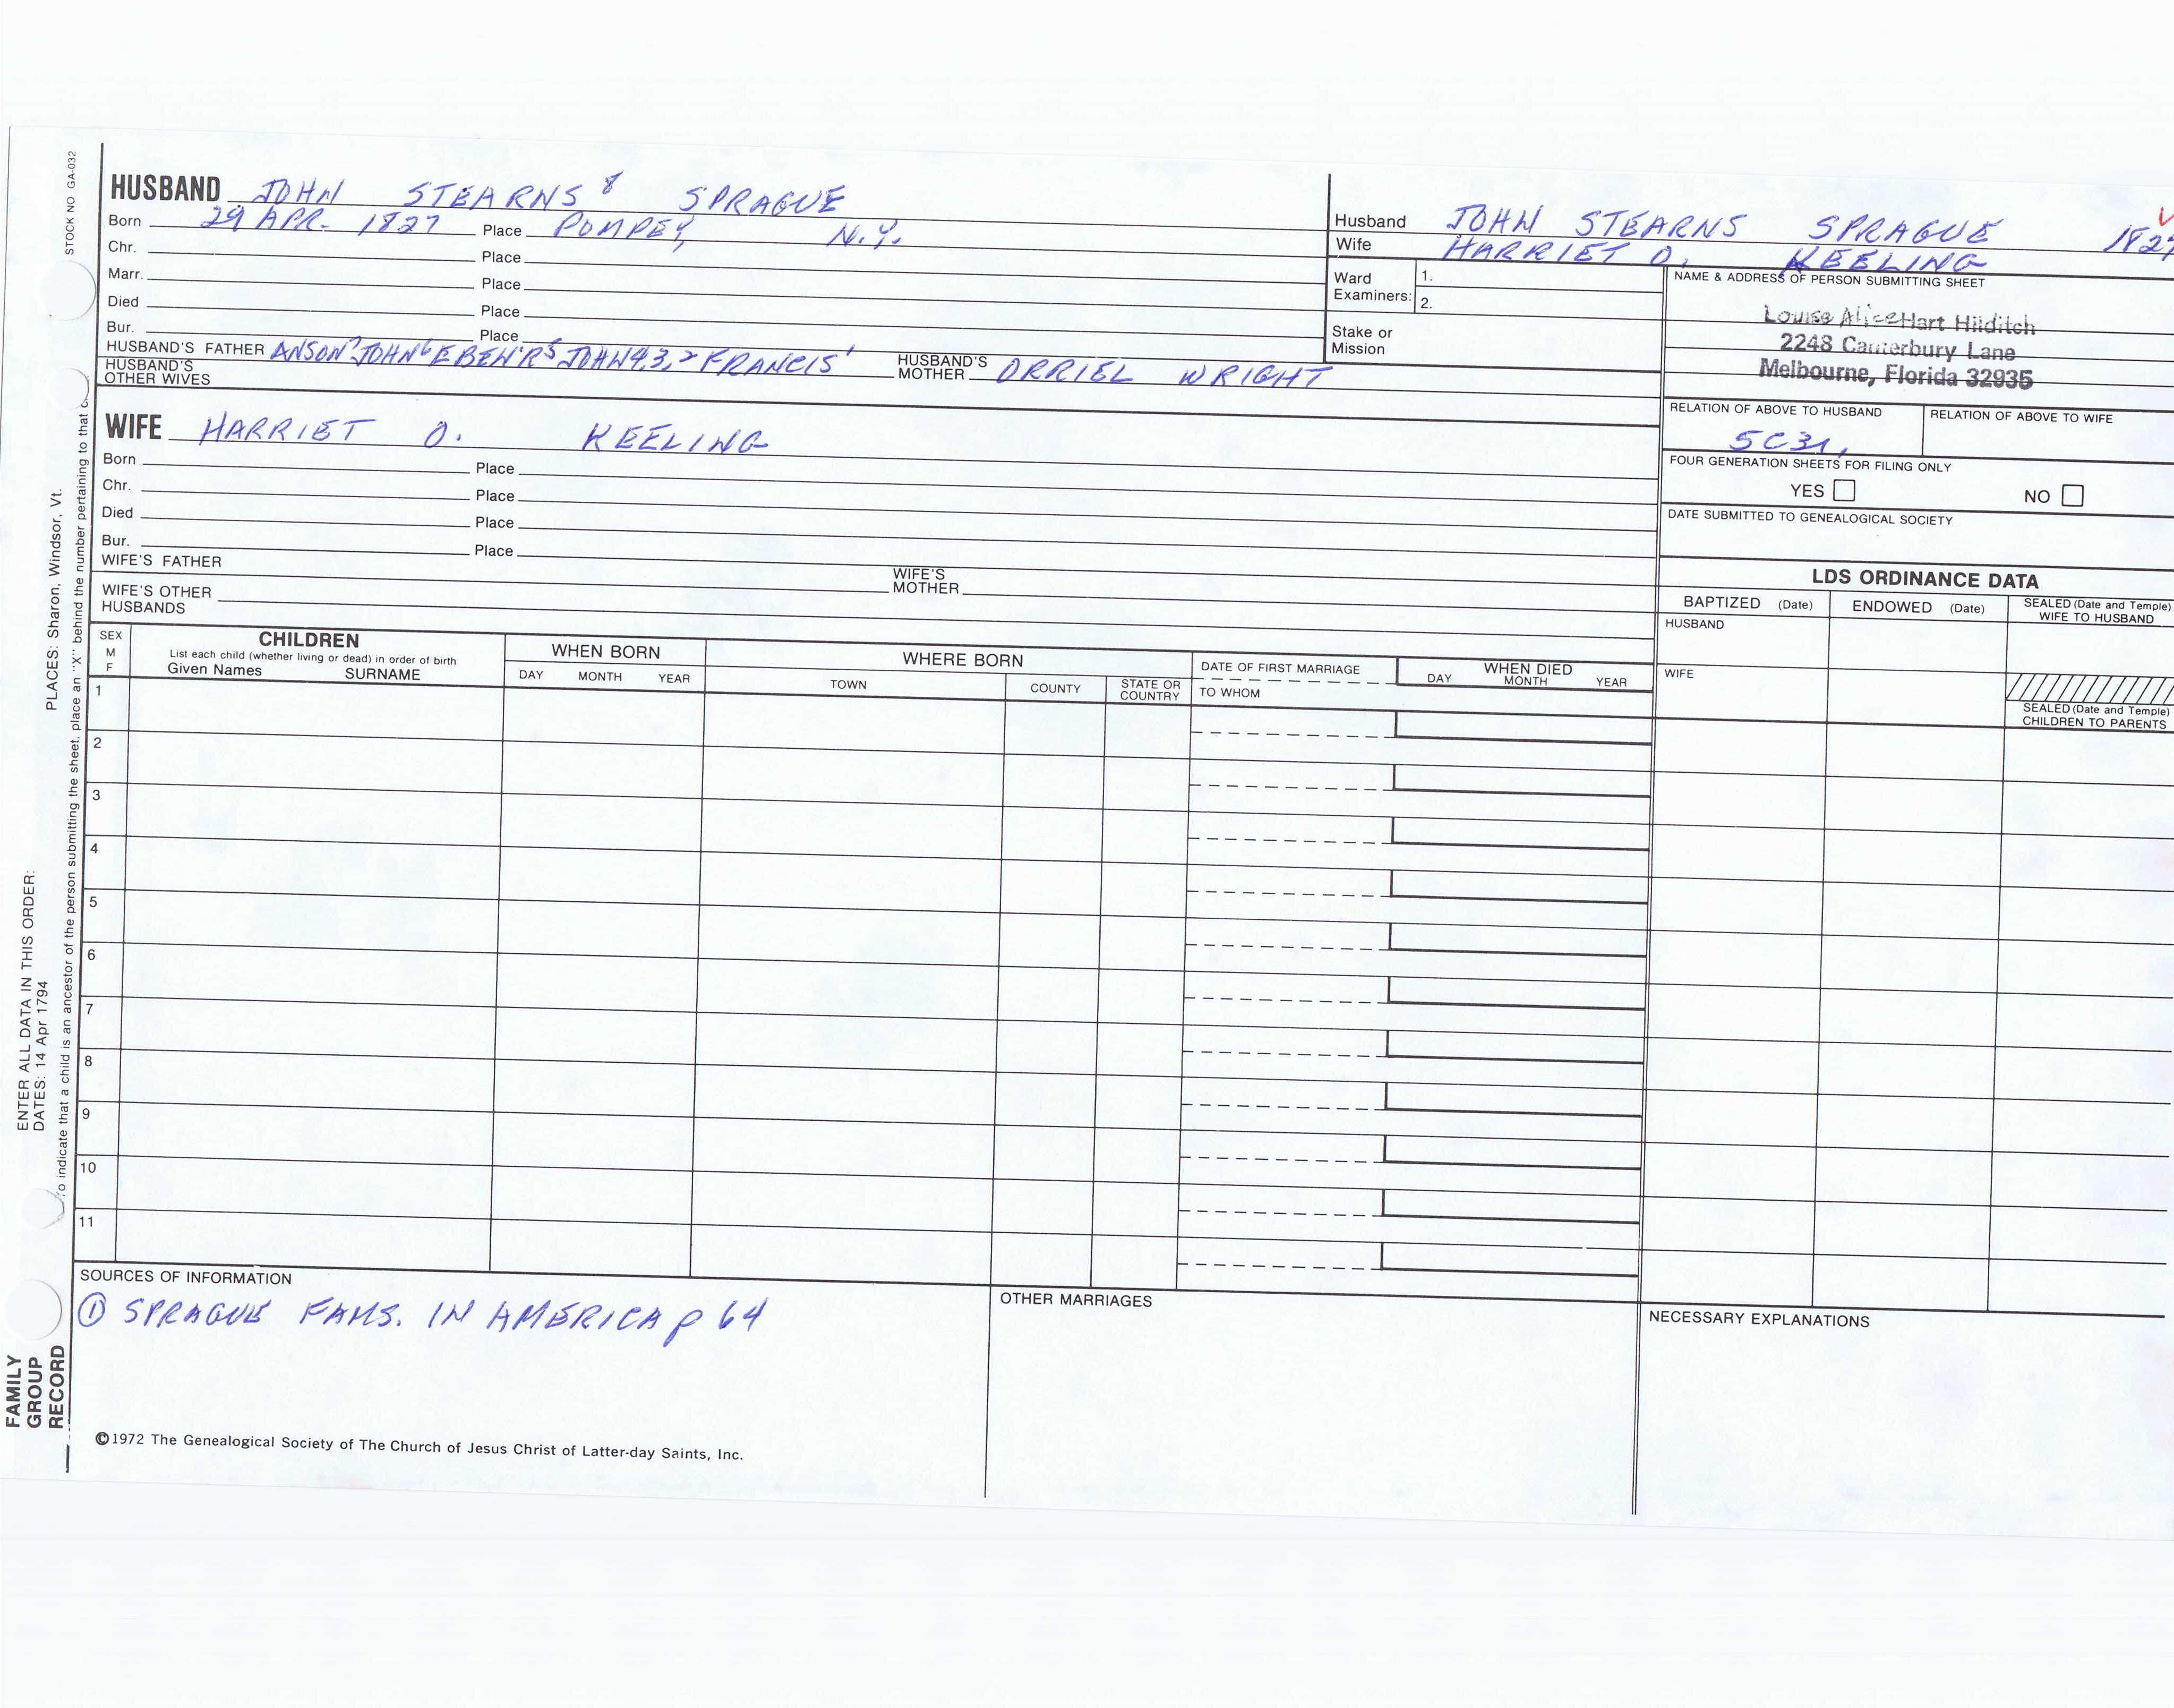 STOCK NO GA-032
HUSBAND JOHN STEARNS 8 SPRAGUE
Born 29 APR. 1827 Place POMPEY, N.Y.
Chr. Place
Marr. Place
Died Place
Bur. Place
HUSBAND'S FATHER ANSON7 JOHN6 EBEN'R5 JOHN4,3,2 FRANCIS1 HUSBAND'S MOTHER ORRIEL WRIGHT
HUSBAND'S OTHER WIVES
Husband JOHN STEARNS SPRAGUE 1827
Wife HARRIET O. KEELING
Ward Examiners: 1.
2.
Stake or Mission
NAME & ADDRESS OF PERSON SUBMITTING SHEET
Louise Alice Hart Hilditch
2248 Canterbury Lane
Melbourne, Florida 32935
RELATION OF ABOVE TO HUSBAND RELATION OF ABOVE TO WIFE
5C3r,
FOUR GENERATION SHEETS FOR FILING ONLY
YES NO
DATE SUBMITTED TO GENEALOGICAL SOCIETY
WIFE HARRIET O. KEELING
Born Place
Chr. Place
Died Place
Bur. Place
WIFE'S FATHER WIFE'S MOTHER
WIFE'S OTHER HUSBANDS
LDS ORDINANCE DATA
BAPTIZED (Date) ENDOWED (Date) SEALED (Date and Temple) WIFE TO HUSBAND
HUSBAND
WIFE
SEALED (Date and Temple) CHILDREN TO PARENTS
SEX M F
CHILDREN
List each child (whether living or dead) in order of birth
Given Names SURNAME
WHEN BORN
DAY MONTH YEAR
WHERE BORN
TOWN COUNTY STATE OR COUNTRY
DATE OF FIRST MARRIAGE
TO WHOM
WHEN DIED
DAY MONTH YEAR
1
2
3
4
5
6
7
8
9
10
11
SOURCES OF INFORMATION
① SPRAGUE FAMS. IN AMERICA p 64
OTHER MARRIAGES
NECESSARY EXPLANATIONS
©1972 The Genealogical Society of The Church of Jesus Christ of Latter-day Saints, Inc.
FAMILY GROUP RECORD
ENTER ALL DATA IN THIS ORDER:
DATES: 14 Apr 1794 PLACES: Sharon, Windsor, Vt.
To indicate that a child is an ancestor of the person submitting the sheet, place an "X" behind the number pertaining to that c